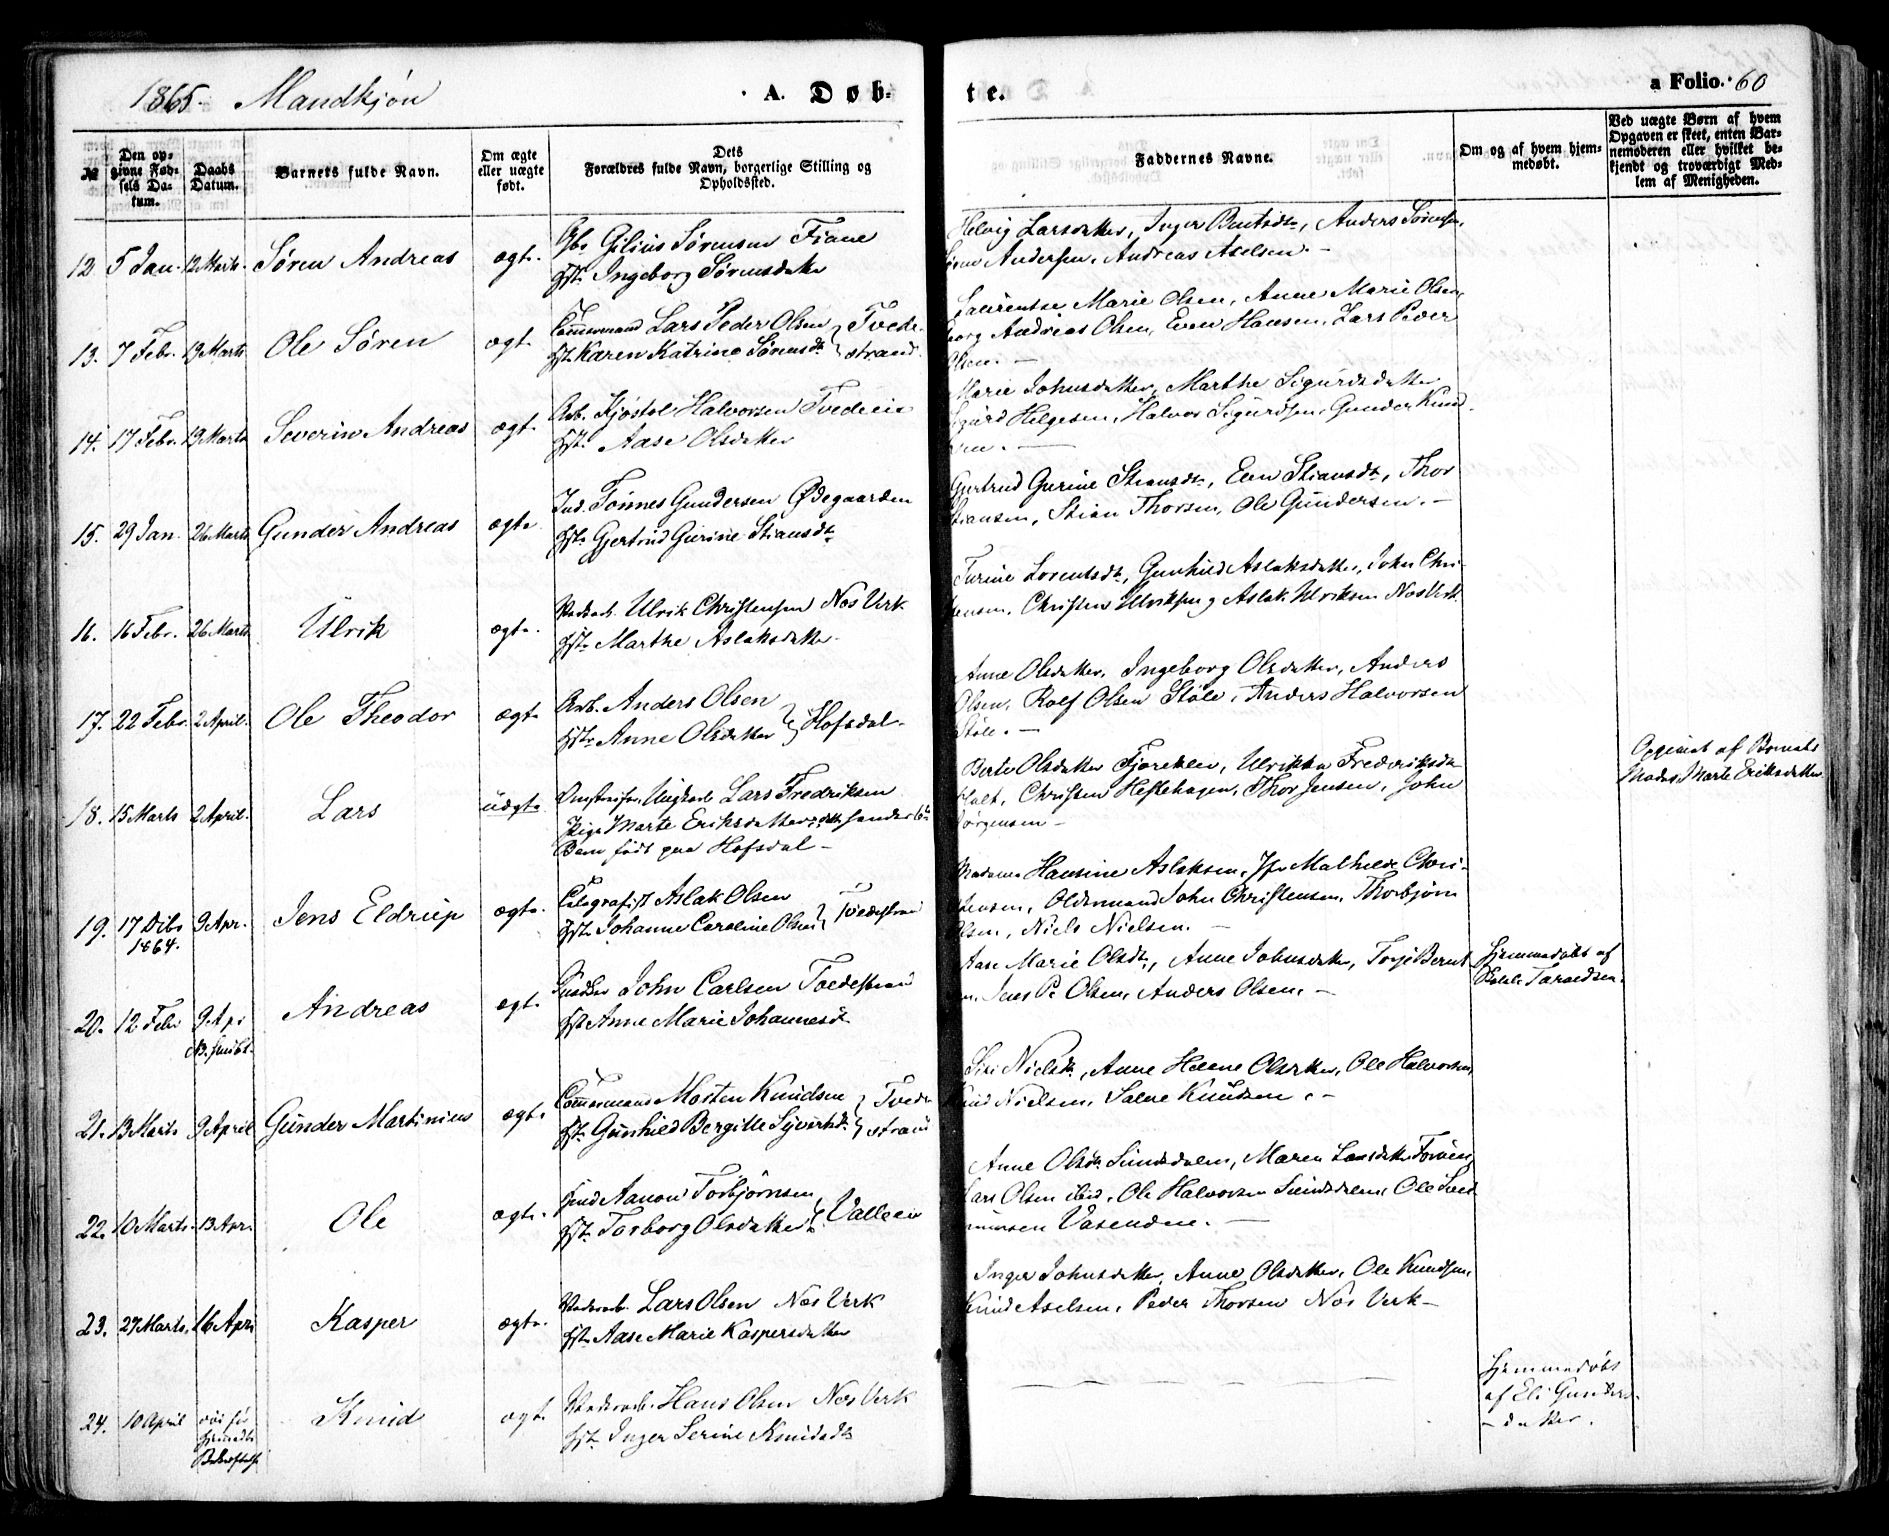 1865. Mandkjøn
A. Døb-
te.
a Folio. 60
№
Den op-
givne Fød-
sels Da-
tum.
Daabs
Datum.
Barnets fulde Navn.
Om ægte
eller uægte
født.
Dets
Forældres fulde Navn, borgerlige Stilling og
Opholdssted.
Faddernes Navne.
Om og af hvem hjem-
medøbt.
Ved uægte Børn af hvem
Opgaven er skeet, enten Bar-
nemoderen eller hvilket be-
kjendt og troværdigt Med-
lem af Menigheden.
12 5 Jan. 12 Marts. Søren Andreas ægte.
Gbr Gilius Sørensen Fiane
Hst. Ingeborg Sørensdatter
Helvig Larsdatter, Inger Bentsdt., Anders Sørensen,
Søren Andersen, Andreas Axelsen. -
13. 7 Febr. 19 Marts. Ole Søren ægt.
Tømmermand Lars Peder Olsen
Hst. Karen Katrine Sørensdt.
Tvede-
strand
Laurentse Marie Olsen, Anne Marie Olsen,
Georg Andreas Olsen, Even Hansen, Lars Peder
Olsen. -
14. 17 Febr. 19 Marts Severin Andreas ægt.
Arb. Kjøstol Halvorsen Tvedeie
Hst. Aase Olsdatter
Marie Johnsdatter, Marthe Sigurdsdatter
Sigurd Helgesen, Halvor Sigurdsen, Gunder Knud-
sen. -
15. 29 Jan. 26 Marts Gunder Andreas ægte
Ind. Tønnes Gundersen Ødegaarden
Hst. Gjertrud Gurine Stiansdt.
Gjertrud Gurine Stiansdt., Elen Stiansdt., Thor
Stiansen, Stian Thorsen, Ole Gundersen. -
16. 16 Febr. 26 Marts Ulrik ægte.
Værksarb. Ulrik Christensen Næs Verk
Hst. Marthe Aslaksdatter.
Turine Lorentsdt., Gunhild Aslaksdatter, John Chri-
stensen, Christen Ulriksen, Aslak Ulriksen Næs Verk.
17. 22 Febr. 2 April. Ole Theodor ægt.
Arb. Anders Olsen
Hst. Anne Olsdatter
Hofsdal.
Anne Olsdatter, Ingeborg Olsdatter, Anders
Olsen, Rolf Olsen Støle, Anders Halvorsen
Støle. -
18. 15 Marts 2 April. Lars uægte
Ungkarl Lars Fredriksen
Pige Marte Eriksdatter
Barn født paa Hofsdal -
Berte Olsdatter Fjærekleiv, Ulrikke Frederiksdt
Holt, Christen Heftehagen, Thor Jensen, John
Jørgensen -
Opgivet af Barnets
Moder, Marte Eriksdatter
19. 17 Dcbr 1864. 9 Apr. Jens Eldrup ægte.
Telegrafist Aslak Olsen
Hst. Johanne Caroline Olsen
Tvedestrand
Madame Hansine Aslaksen, Jfr Mathilde Chri-
stensen, Oldermand John Christensen, Thorbjørn
Olsen, Niels Nielsen. -
20. 12 Febr 9 Apr Andreas ægt.
John Carlsen Tvedestrand
Hst. Anne Marie Johannesdt.
Aase Marie Olsdt., Anne Johnsdatter, Terje Bernt
Jens P. Olsen, Anders Olsen. -
Hjemmedøbt af
21. 13 Marts 9 April Gunder Martinius ægt.
Tømmermand Morten Knudsen
Hst. Gunhild Bergitte Syvertsdt.
Tvede-
strand
Siri Nielsdt., Anne Helene Olsdatter, Ole Halvorsen,
Knud Nielsen, Salve Knudsen. -
22. 10 Marts. 13 Apr. Ole ægte.
Aanon Torbjørnsen
Hst. Torborg Olsdatter
Valleeie
Anne Olsdt. Sundsdalen, Maren Larsdatter
Lars Olsen ibid, Ole Halvorsen Sundsdalen, Ole
Vasenden. -
23. 27 Marts. 16 Apri Kasper ægte.
Værksarb. Lars Olsen Næs Verk
Hst. Aase Marie Kaspersdatter
Inger Johnsdatter, Anne Olsdatter, Ole Knudsen,
Knud Axelsen, Peder Thorsen Næs Verk -
24. 10 April Knud ægt.
Værksarb. Hans Olsen Næs Verk
Hst. Inger Serine Knudsdt.
Hjemmedøbt
af Eli Gunders-
datter.